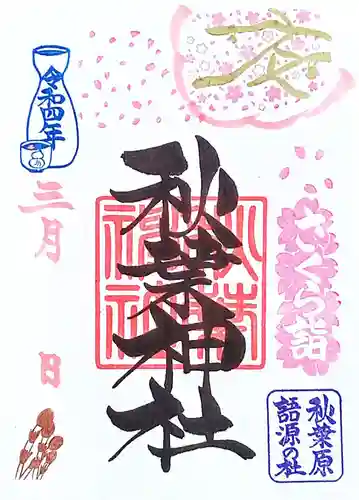 さくら詣
秋葉原
語源の社
秋葉神社
令和四年
三月
日